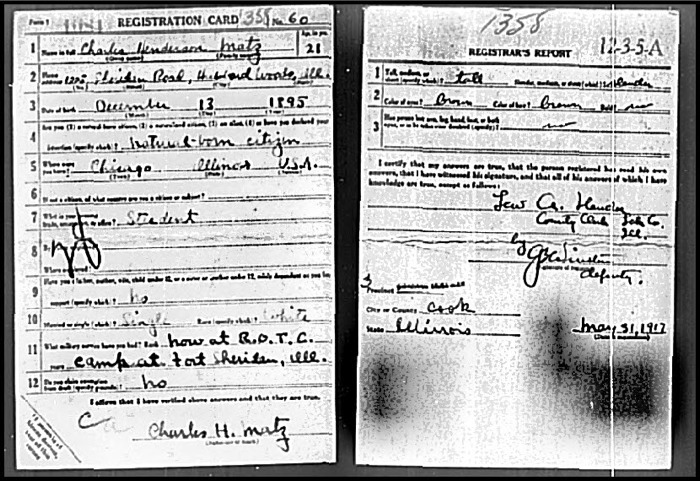 Form 1 REGISTRATION CARD 1358 No. 60
1 Name in full Charles Henderson Matz Age, in yrs. 21
(Given name) (Family name)
2 Home address 1205 Sheridan Road, Hubbard Woods, Ill.
(No.) (Street) (City) (State)
3 Date of birth December 13 1895
(Month) (Day) (Year)
4 Are you (1) a natural-born citizen, (2) a naturalized citizen, (3) an alien, (4) or have you declared your
intention (specify which)? natural-born citizen
5 Where were you born? Chicago Illinois U.S.A.
(Town) (State) (Nation)
6 If not a citizen, of what country are you a citizen or subject?
7 What is your present trade, occupation, or office? Student
8 By
Where employed?
9 Have you a father, mother, wife, child under 12, or a sister or brother under 12, solely dependent on you for
support (specify which)? No
10 Married or single (which)? Single Race (specify which)? White
11 What military service have you had? Rank now at R.O.T.C.
years camp at Fort Sheridan, Ill.
12 Do you claim exemption from draft (specify grounds)? No
I affirm that I have verified above answers and that they are true.
Charles H. Matz
1358
REGISTRAR'S REPORT 12-3-5-A
1 Tall, medium, or short (specify which)? tall Slender, medium, or stout (which)? slender
2 Color of eyes? Brown Color of hair? brown Bald? no
3 Has person lost arm, leg, hand, foot, or both
eyes, or is he otherwise disabled (specify)? no
I certify that my answers are true, that the person registered has read his own
answers, that I have witnessed his signature, and that all of his answers of which I have
knowledge are true, except as follows:
Lew A. Hendee
County Clerk Lake Co.
Ill.
by
deputy.
Precinct 3
City or County Cook
State Illinois May 31, 1917
(Date of registration)